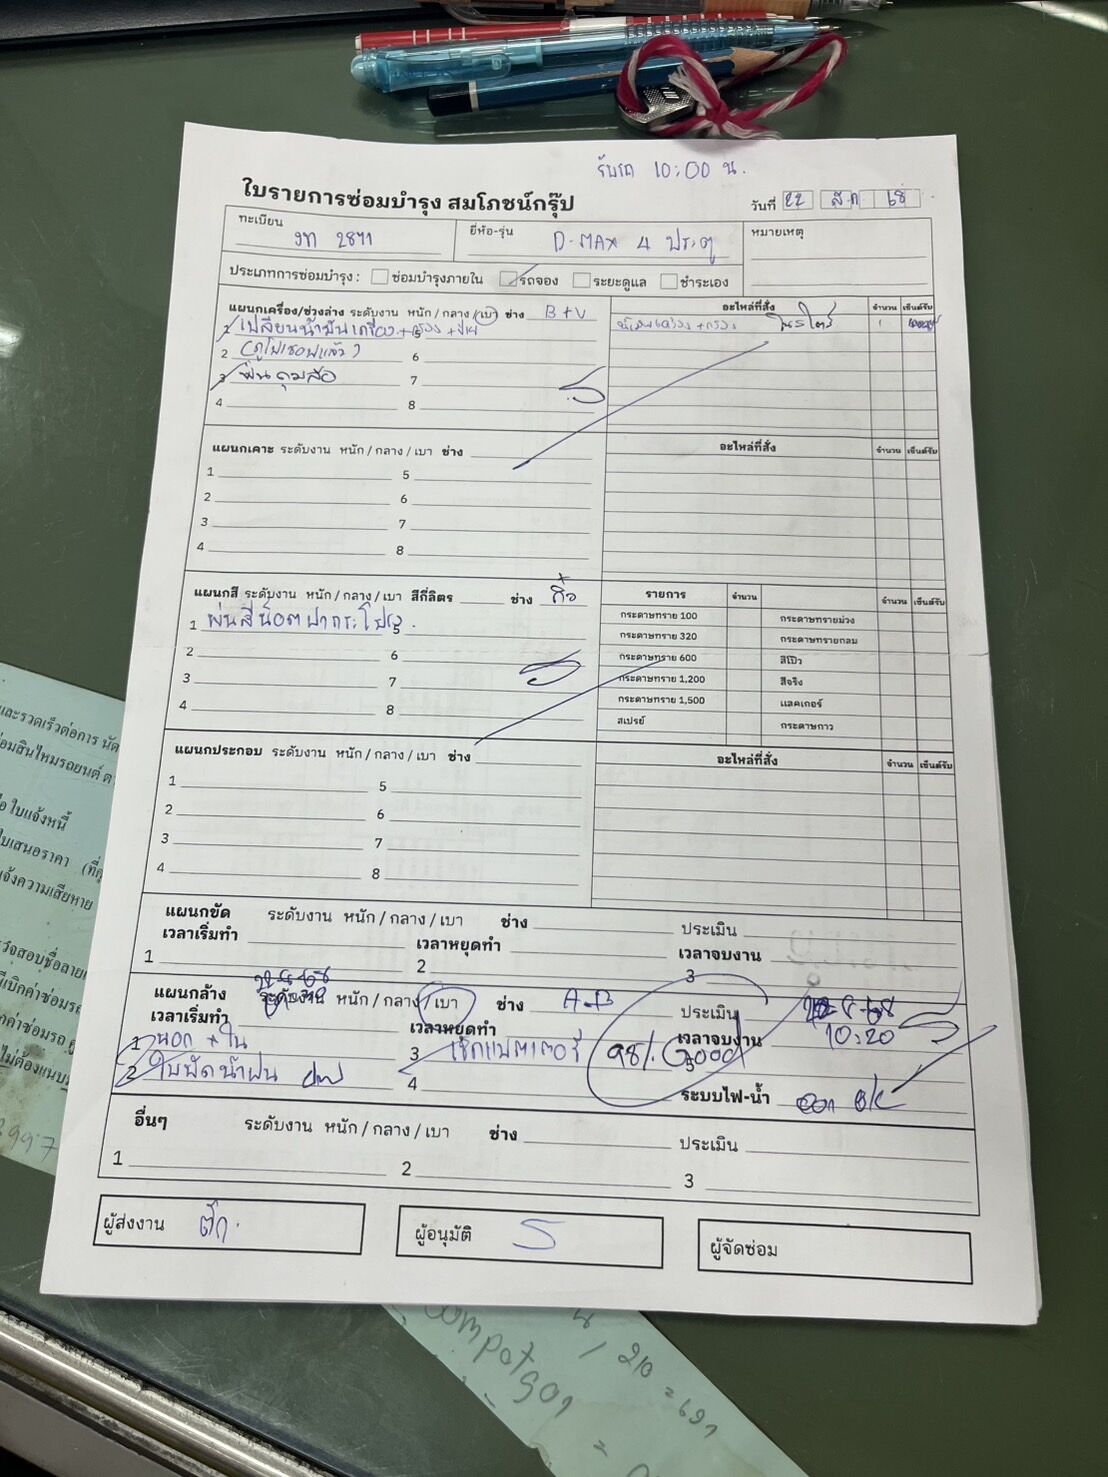 รับรถ 10:00 น.
ใบรายการซ่อมบำรุง สมโภชน์กรุ๊ป
วันที่ 22 ส.ค 68
ทะเบียน งท 2871 ยี่ห้อ-รุ่น D-MAX 4 ประตู หมายเหตุ
ประเภทการซ่อมบำรุง : ซ่อมบำรุงภายใน รถจอง ระยะดูแล ชำระเอง
แผนกเครื่อง/ช่วงล่าง ระดับงาน หนัก / กลาง / เบา ช่าง B+V อะไหล่ที่สั่ง จำนวน เซ็นต์รับ
1 เปลี่ยนน้ำมันเครื่อง+กรอง 5 น้ำมันเครื่อง+กรอง 1
2 6
3 พ่นซุ้มล้อ 7
4 8
แผนกเคาะ ระดับงาน หนัก / กลาง / เบา ช่าง อะไหล่ที่สั่ง จำนวน เซ็นต์รับ
1 5
2 6
3 7
4 8
แผนกสี ระดับงาน หนัก / กลาง / เบา สีกี่ลิตร ช่าง รายการ จำนวน จำนวน เซ็นต์รับ
1 พ่นสีน็อตฝากระโปรง 5 กระดาษทราย 100 กระดาษทรายม่วง
กระดาษทราย 320 กระดาษทรายกลม
2 6 กระดาษทราย 600 สีโป๊ว
3 7 กระดาษทราย 1,200 สีจริง
4 8 กระดาษทราย 1,500 แลคเกอร์
สเปรย์ กระดาษกาว
แผนกประกอบ ระดับงาน หนัก / กลาง / เบา ช่าง อะไหล่ที่สั่ง จำนวน เซ็นต์รับ
1 5
2 6
3 7
4 8
แผนกขัด ระดับงาน หนัก / กลาง / เบา ช่าง ประเมิน
เวลาเริ่มทำ เวลาหยุดทำ เวลาจบงาน
1 2 3
แผนกล้าง ระดับงาน หนัก / กลาง / เบา ช่าง A-B ประเมิน
เวลาเริ่มทำ เวลาหยุดทำ เวลาจบงาน 10:20
1 นอก + ใน 3 เช็คแบตเตอรี่ 98% Good
2 ใบปัดน้ำฝน 4 ระบบไฟ-น้ำ OK
อื่นๆ ระดับงาน หนัก / กลาง / เบา ช่าง ประเมิน
1 2 3
ผู้ส่งงาน ตั๊ก ผู้อนุมัติ ผู้จัดซ่อม
และรวดเร็วต่อการ นัด
ใบแจ้งหนี้
ใบเสนอราคา